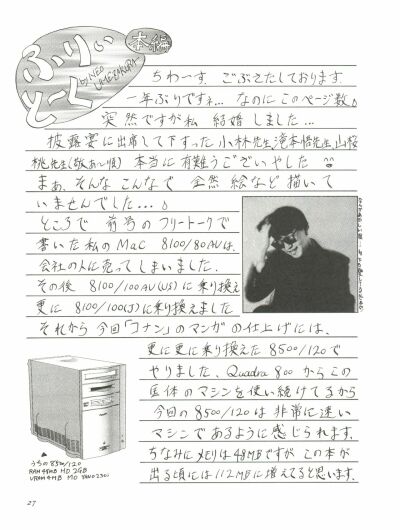 ふりぃとーく 本編
by NEO UMEZAKURA
ちわーす、ごぶさたしております
一年ぶりですネ… なのにこのページ数♪
突然ですが私 結婚しました…
披露宴に出席して下すった小林先生滝本悟先生山桜
桃先生(敬あ～順) 本当に有難うございやした
まぁ、そんなこんなで 全然 絵など描いて
いませんでした…♪
ところで 前号のフリートークで
書いた私のMac 8100/80AVは、
会社の人に売ってしまいました、
その後 8100/100AV(US)に乗り換え
更に 8100/100(J)に乗り換えました
それから今回「コナン」のマンガの仕上げには、
更に更に乗り換えた8500/120で
やりました、Quadra 800からこの
筐体のマシンを使い続けてるから
今回の8500/120は非常に速い
マシンであるように感じられます、
ちなみにメモリは48MBですが この本が
出る頃には112MBに増えてると思います、
うちの8500/120
RAM48MB HD 2GB
VRAM4MB MO
27